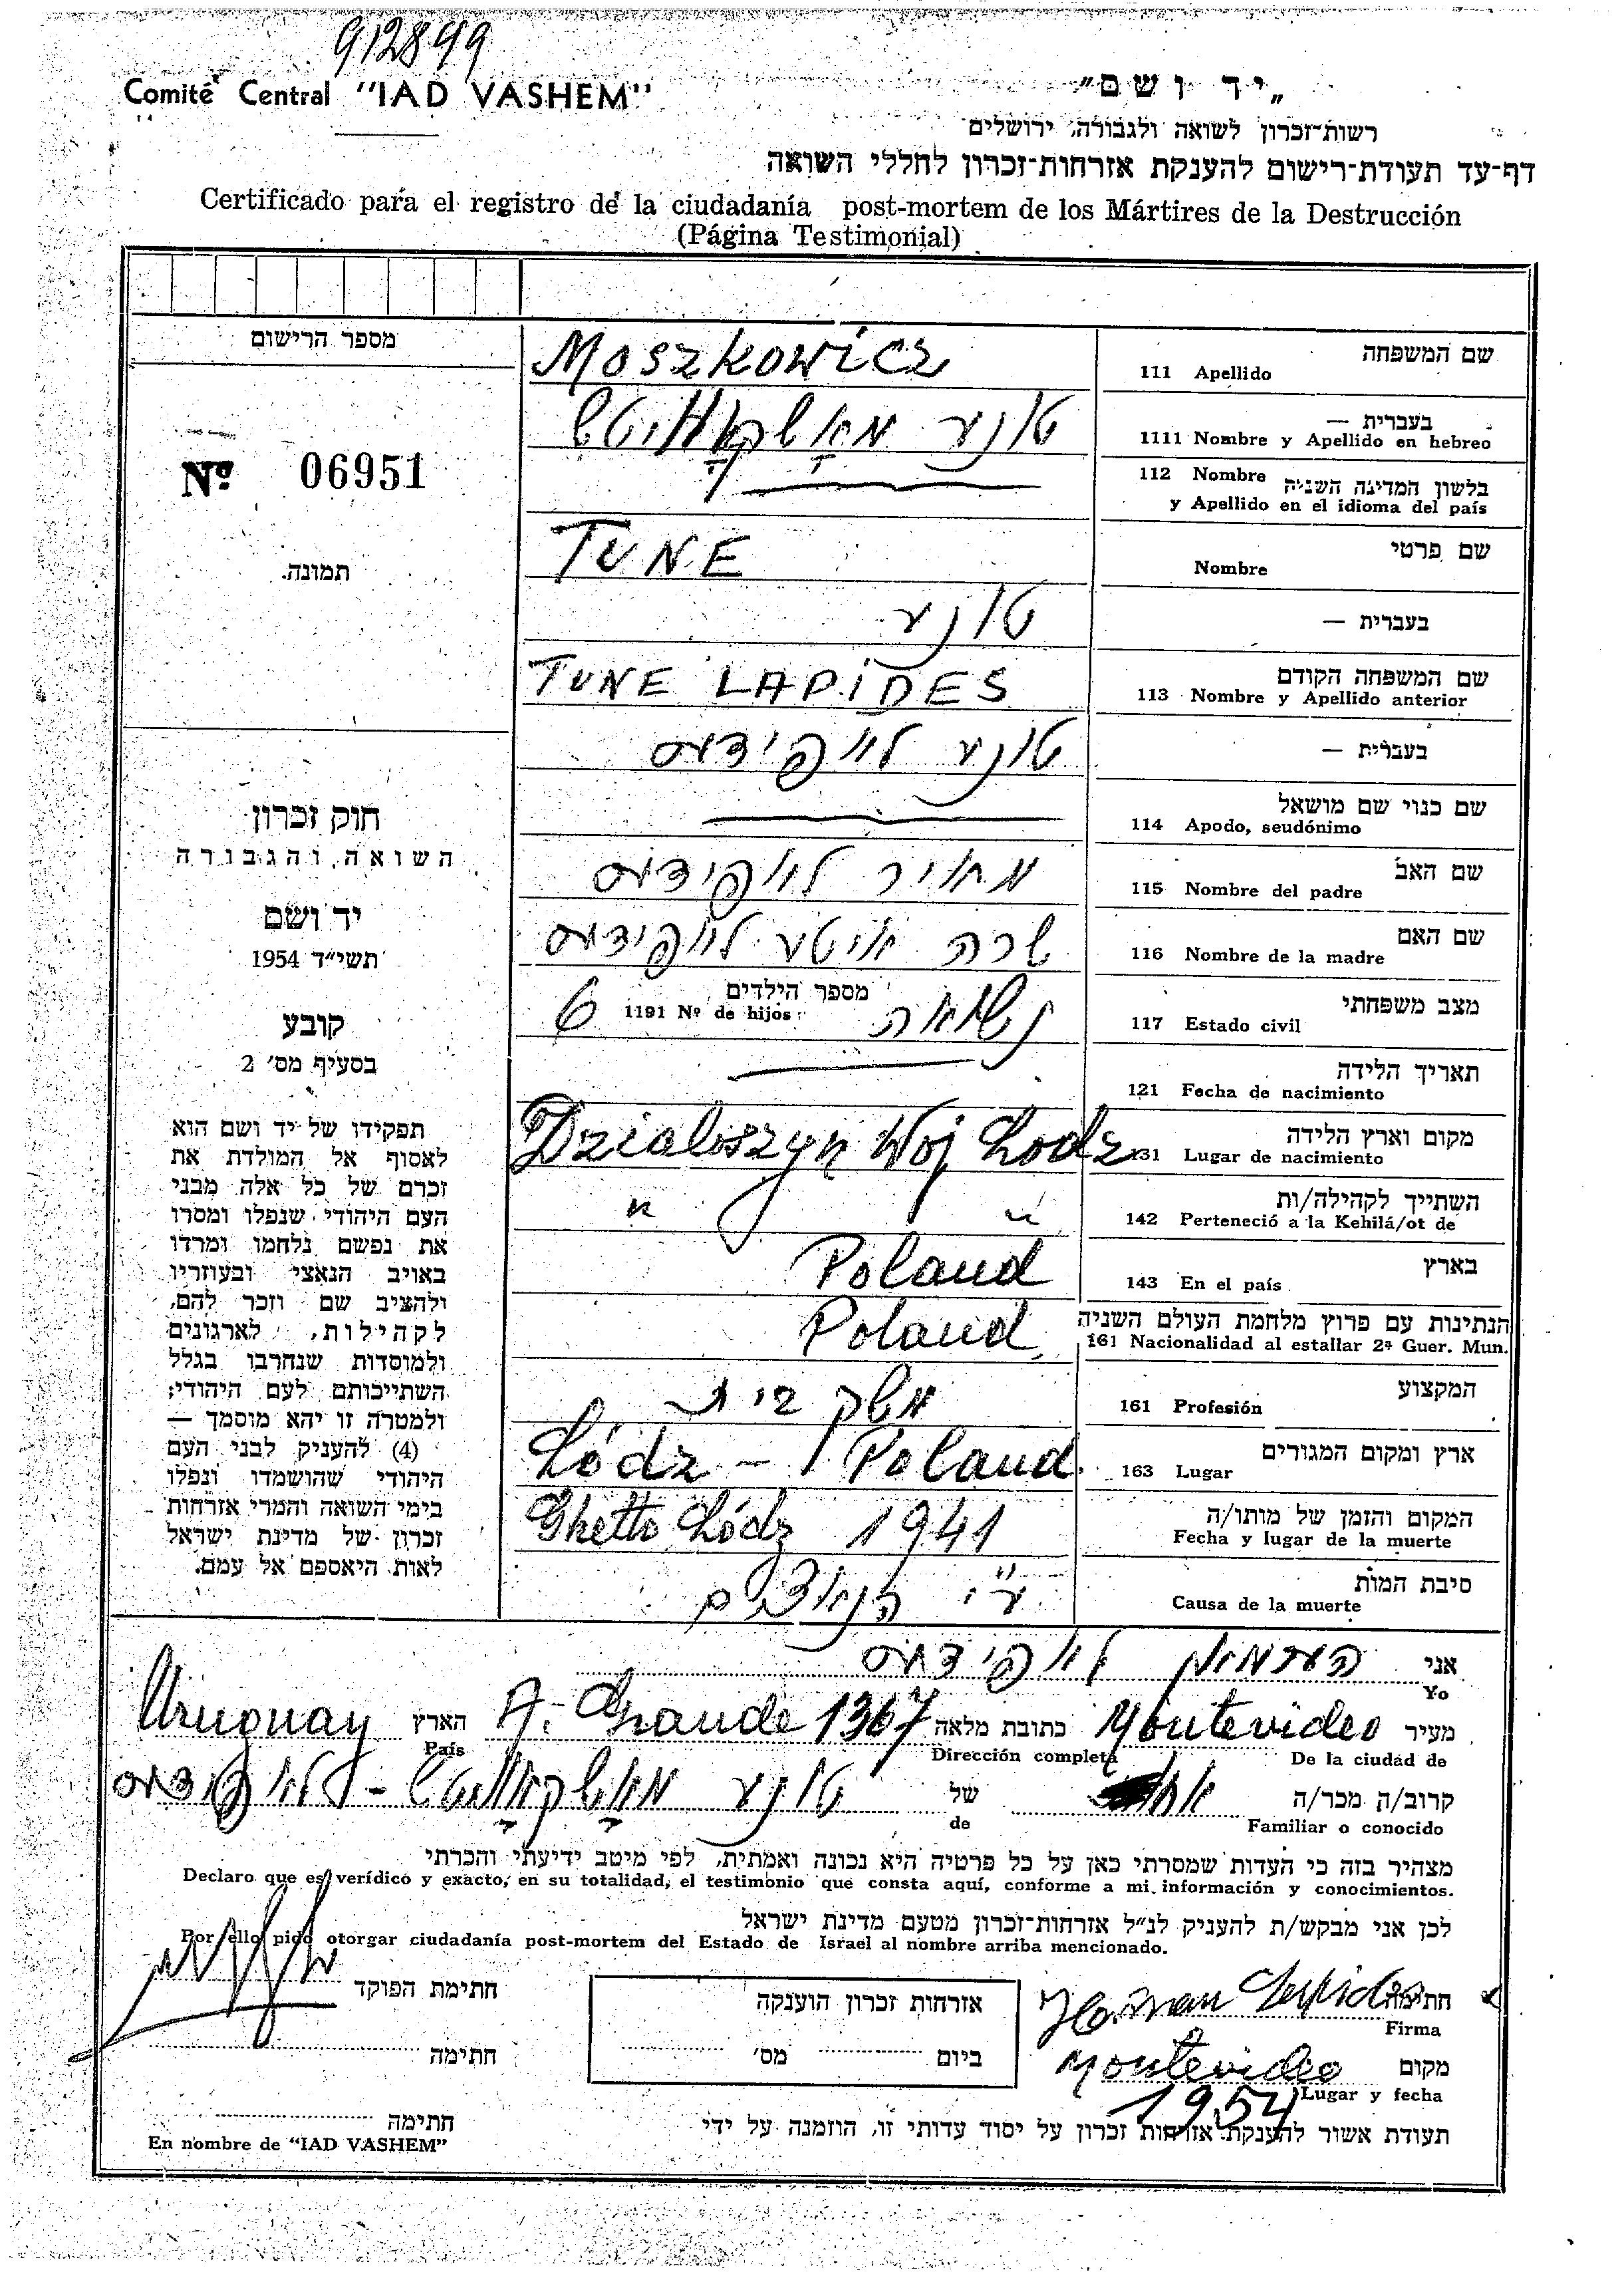 912899
Comité Central "IAD VASHEM"
„יד ושם"
רשות־זכרון לשואה ולגבורה, ירושלים
דף־עד תעודת־רישום להענקת אזרחות־זכרון לחללי השואה
Certificado para el registro de la ciudadanía post-mortem de los Mártires de la Destrucción
(Página Testimonial)
מספר הרישום
Nº 06951
תמונה.
חוק זכרון
השואה והגבורה
יד ושם
תשי״ד 1954
קובע
בסעיף מס׳ 2
תפקידו של יד ושם הוא
לאסוף אל המולדת את
זכרם של כל אלה מבני
העם היהודי שנפלו ומסרו
את נפשם נלחמו ומרדו
באויב הנאצי ובעוזריו
ולהציב שם וזכר להם,
לקהילות, לארגונים
ולמוסדות שנחרבו בגלל
השתייכותם לעם היהודי;
ולמטרה זו יהא מוסמך —
(4) להעניק לבני העם
היהודי שהושמדו ונפלו
בימי השואה והמרי אזרחות
זכרון של מדינת ישראל
לאות היאספם אל עמם.
שם המשפחה
111 Apellido
Moszkowicz
בעברית —
1111 Nombre y Apellido en hebreo
טונע מאָשקאָוויטש
112 Nombre בלשון המדינה השניה
y Apellido en el idioma del país
שם פרטי
Nombre
TUNE
בעברית —
טונע
שם המשפחה הקודם
113 Nombre y Apellido anterior
TUNE LAPIDES
בעברית —
טונע לאפידעס
שם כנוי שם מושאל
114 Apodo, seudónimo
שם האב
115 Nombre del padre
מאיר לאפידעס
שם האם
116 Nombre de la madre
שרה איטע לאפידעס
מצב משפחתי
117 Estado civil
נשואה
מספר הילדים
1191 Nº de hijos:
6
תאריך הלידה
121 Fecha de nacimiento
מקום וארץ הלידה
131 Lugar de nacimiento
Dzialoszyn Woj Lodz
השתייך לקהילה/ות
142 Perteneció a la Kehilá/ot de
" "
בארץ
143 En el país
Poland
הנתינות עם פרוץ מלחמת העולם השניה
161 Nacionalidad al estallar 2ª Guer. Mun.
Poland
המקצוע
161 Profesión
משק בית
ארץ ומקום המגורים
163 Lugar
Łódz - Poland
המקום והזמן של מותו/ה
Fecha y lugar de la muerte
Ghetto Łódz 1941
סיבת המות
Causa de la muerte
ע״י הנאצים
אני
Yo
הערמאן לאפידעס
מעיר Montevideo כתובת מלאה A. Grande 1367 הארץ Uruguay
De la ciudad de Dirección completa País
קרוב/ה מכר/ה של טונע מאָשקאָוויטש - לאפידעס
Familiar o conocido de
מצהיר בזה כי העדות שמסרתי כאן על כל פרטיה היא נכונה ואמתית, לפי מיטב ידיעתי והכרתי
Declaro que es verídico y exacto, en su totalidad, el testimonio que consta aquí, conforme a mi información y conocimientos.
לכן אני מבקש/ת להעניק לנ״ל אזרחות־זכרון מטעם מדינת ישראל
Por ello pido otorgar ciudadanía post-mortem del Estado de Israel al nombre arriba mencionado.
חתימה
Firma
Herman Lapides
אזרחות זכרון הוענקה
ביום מס׳
חתימת הפוקד
חתימה
מקום
Montevideo
Lugar y fecha
1954
חתימה
En nombre de "IAD VASHEM"
תעודת אשור להענקת אזרחות זכרון על יסוד עדותי זו, הוזמנה על ידי